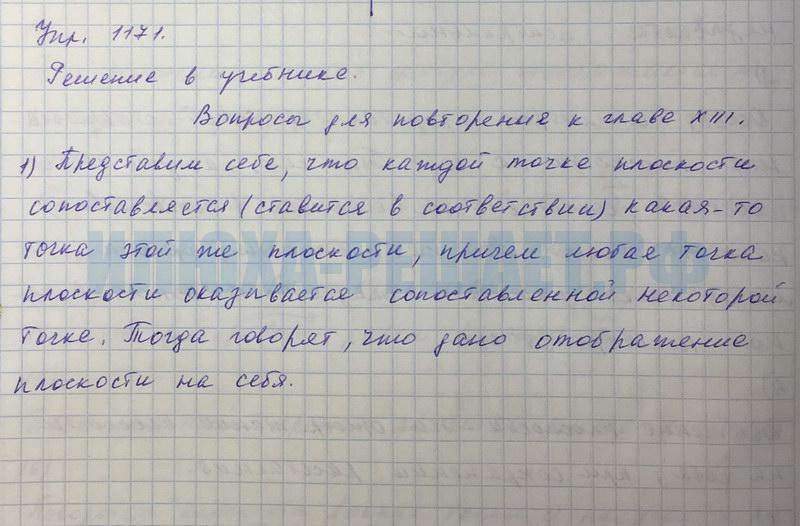 Упр. 1171.
Решение в учебнике.
Вопросы для повторения к главе XIII.
1) Представим себе, что каждой точке плоскости
сопоставляется (ставится в соответствии) какая-то
точка этой же плоскости, причем любая точка
ИЛЮХА-РЕШАЕТ.РФ
плоскости оказывается сопоставленной некоторой
точке. Тогда говорят, что дано отображение
плоскости на себя.